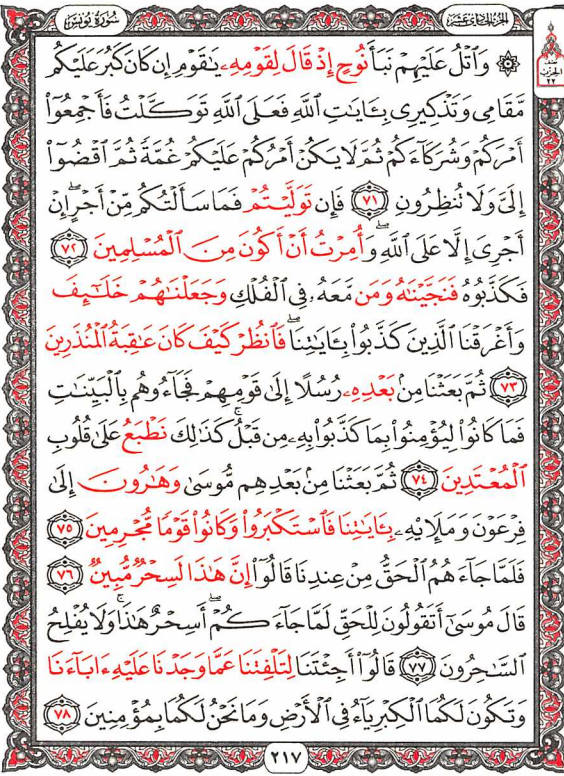 سُورَةُ يُونُسَ
الجُزْءُ الحَادِي عَشَرَ
الحِزْبِ
٢٢
۞ وَٱتْلُ عَلَيْهِمْ نَبَأَ نُوحٍ إِذْ قَالَ لِقَوْمِهِۦ يَٰقَوْمِ إِن كَانَ كَبُرَ عَلَيْكُم
مَّقَامِى وَتَذْكِيرِى بِـَٔايَٰتِ ٱللَّهِ فَعَلَى ٱللَّهِ تَوَكَّلْتُ فَأَجْمِعُوٓا۟
أَمْرَكُمْ وَشُرَكَآءَكُمْ ثُمَّ لَا يَكُنْ أَمْرُكُمْ عَلَيْكُمْ غُمَّةً ثُمَّ ٱقْضُوٓا۟
إِلَىَّ وَلَا تُنظِرُونِ ٧١ فَإِن تَوَلَّيْتُمْ فَمَا سَأَلْتُكُم مِّنْ أَجْرٍ ۖ إِنْ
أَجْرِىَ إِلَّا عَلَى ٱللَّهِ ۖ وَأُمِرْتُ أَنْ أَكُونَ مِنَ ٱلْمُسْلِمِينَ ٧٢
فَكَذَّبُوهُ فَنَجَّيْنَٰهُ وَمَن مَّعَهُۥ فِى ٱلْفُلْكِ وَجَعَلْنَٰهُمْ خَلَٰٓئِفَ
وَأَغْرَقْنَا ٱلَّذِينَ كَذَّبُوا۟ بِـَٔايَٰتِنَا ۖ فَٱنظُرْ كَيْفَ كَانَ عَٰقِبَةُ ٱلْمُنذَرِينَ
٧٣ ثُمَّ بَعَثْنَا مِنۢ بَعْدِهِۦ رُسُلًا إِلَىٰ قَوْمِهِمْ فَجَآءُوهُم بِٱلْبَيِّنَٰتِ
فَمَا كَانُوا۟ لِيُؤْمِنُوا۟ بِمَا كَذَّبُوا۟ بِهِۦ مِن قَبْلُ ۚ كَذَٰلِكَ نَطْبَعُ عَلَىٰ قُلُوبِ
ٱلْمُعْتَدِينَ ٧٤ ثُمَّ بَعَثْنَا مِنۢ بَعْدِهِم مُّوسَىٰ وَهَٰرُونَ إِلَىٰ
فِرْعَوْنَ وَمَلَإِي۟هِۦ بِـَٔايَٰتِنَا فَٱسْتَكْبَرُوا۟ وَكَانُوا۟ قَوْمًا مُّجْرِمِينَ ٧٥
فَلَمَّا جَآءَهُمُ ٱلْحَقُّ مِنْ عِندِنَا قَالُوٓا۟ إِنَّ هَٰذَا لَسِحْرٌ مُّبِينٌ ٧٦
قَالَ مُوسَىٰٓ أَتَقُولُونَ لِلْحَقِّ لَمَّا جَآءَكُمْ ۖ أَسِحْرٌ هَٰذَا وَلَا يُفْلِحُ
ٱلسَّٰحِرُونَ ٧٧ قَالُوٓا۟ أَجِئْتَنَا لِتَلْفِتَنَا عَمَّا وَجَدْنَا عَلَيْهِ ءَابَآءَنَا
وَتَكُونَ لَكُمَا ٱلْكِبْرِيَآءُ فِى ٱلْأَرْضِ وَمَا نَحْنُ لَكُمَا بِمُؤْمِنِينَ ٧٨
٢١٧